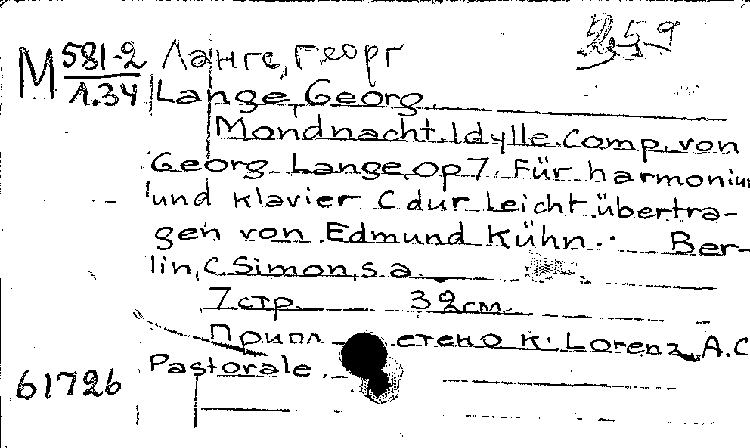 M 581-2 Ланге, Георг
Л.34 Lange, Georg.
Mondnacht. Idylle. Comp. von
Georg Lange op 7. Für harmonium
und klavier C dur leicht übertra-
gen von Edmund Kühn. Ber-
lin, C. Simon, s. a.
7 стр. 32 см.
Припл етено к: Lorenz, A. C
61726 Pastorale.